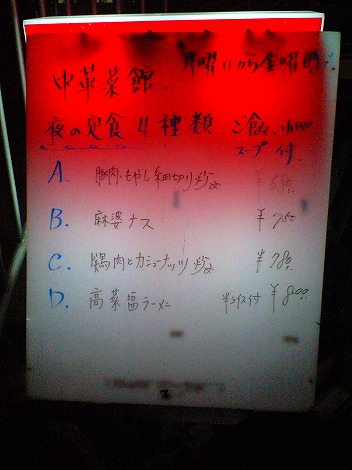 月曜日から金曜日まで
中華菜館
夜の定食4種類 ご飯、
スープ付
A. 豚肉、もやし細切り炒め ¥680.
B. 麻婆ナス ¥750
C. 鶏肉とカシューナッツ炒め ¥780.
D. 高菜ラーメン 半ライス付 ¥800.